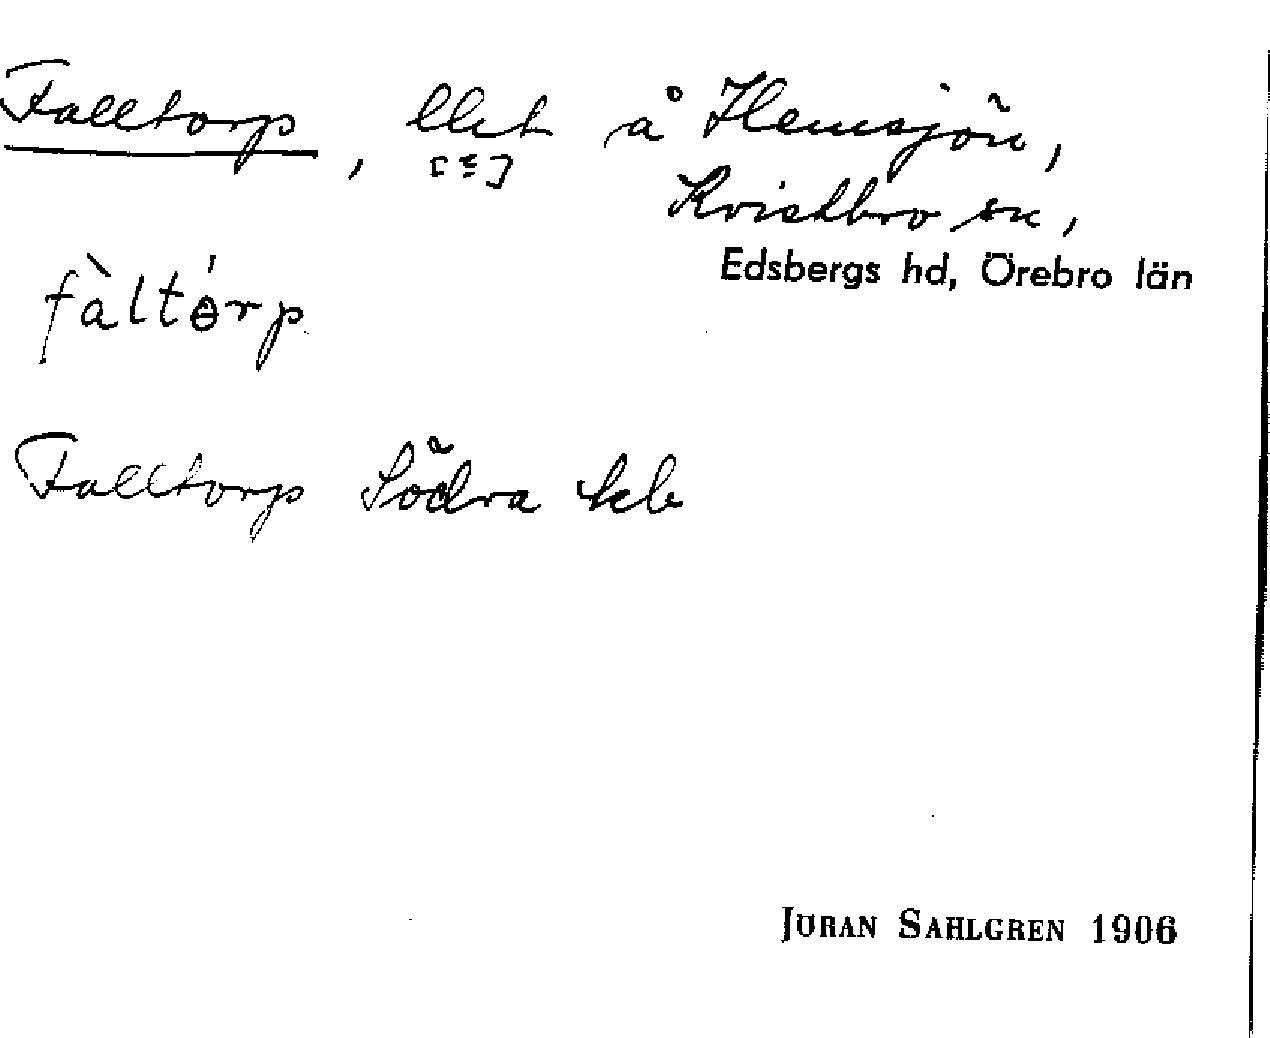 Falltorp, llet å Hemsjön,
[ɛ]
Kvistbro sn,
Edsbergs hd, Örebro län
fàltɵ́rp
Falltorp Södra kb
JÖRAN SAHLGREN 1906